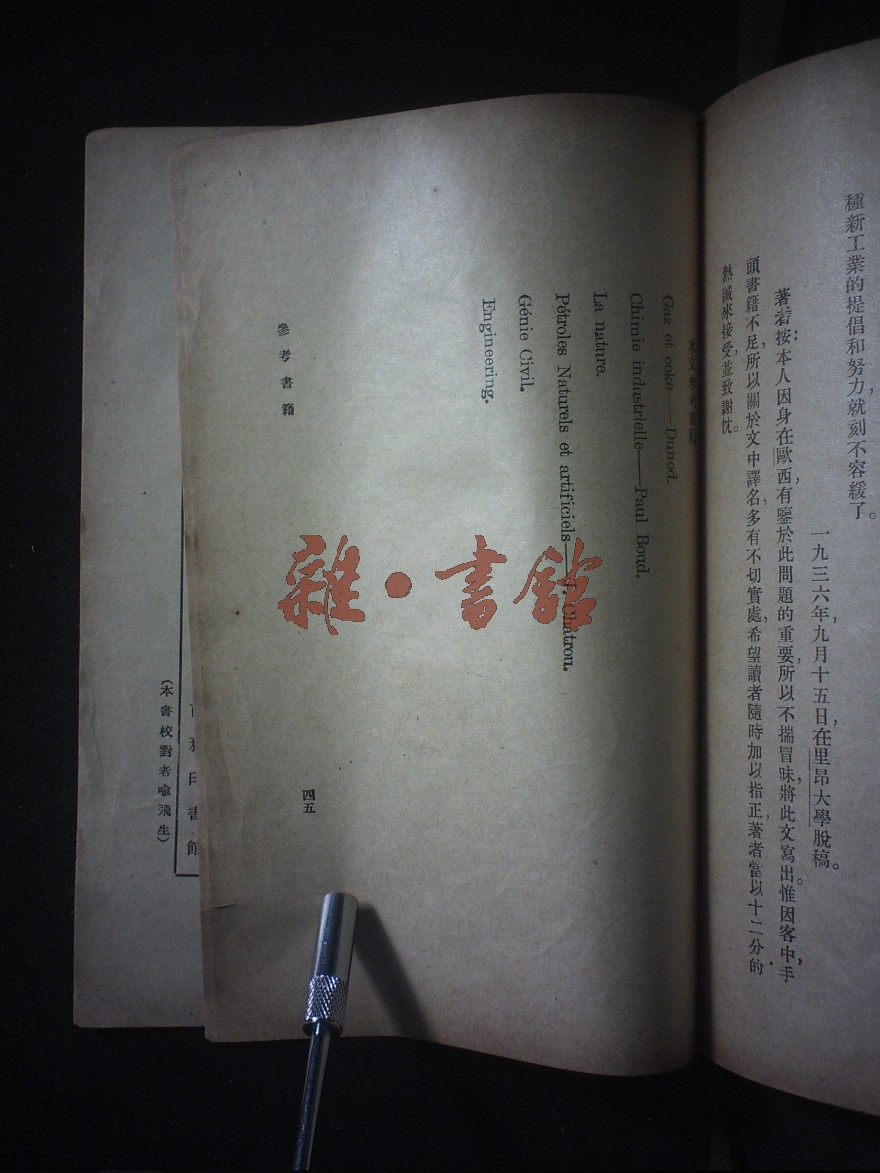 種新工業的提倡和努力,就刻不容緩了。
一九三六年,九月十五日,在里昂大學脫稿。
著者按:本人因身在歐西,有鑒於此問題的重要,所以不揣冒昧,將此文寫出。惟因客中,手
頭書籍不足,所以關於文中譯名,多有不切實處,希望讀者隨時加以指正,著者當以十二分的
熱誠來接受,並致謝忱。
本文參考書籍
Gaz et coke——Dunod.
Chimie industrielle——Paul Boud.
La nature.
Pétroles Naturels et artificiels——J. Chatrou.
Génie Civil.
Engineering.
參考書籍
四五
印書館
(本書校對者喻飛生)
雜·書館